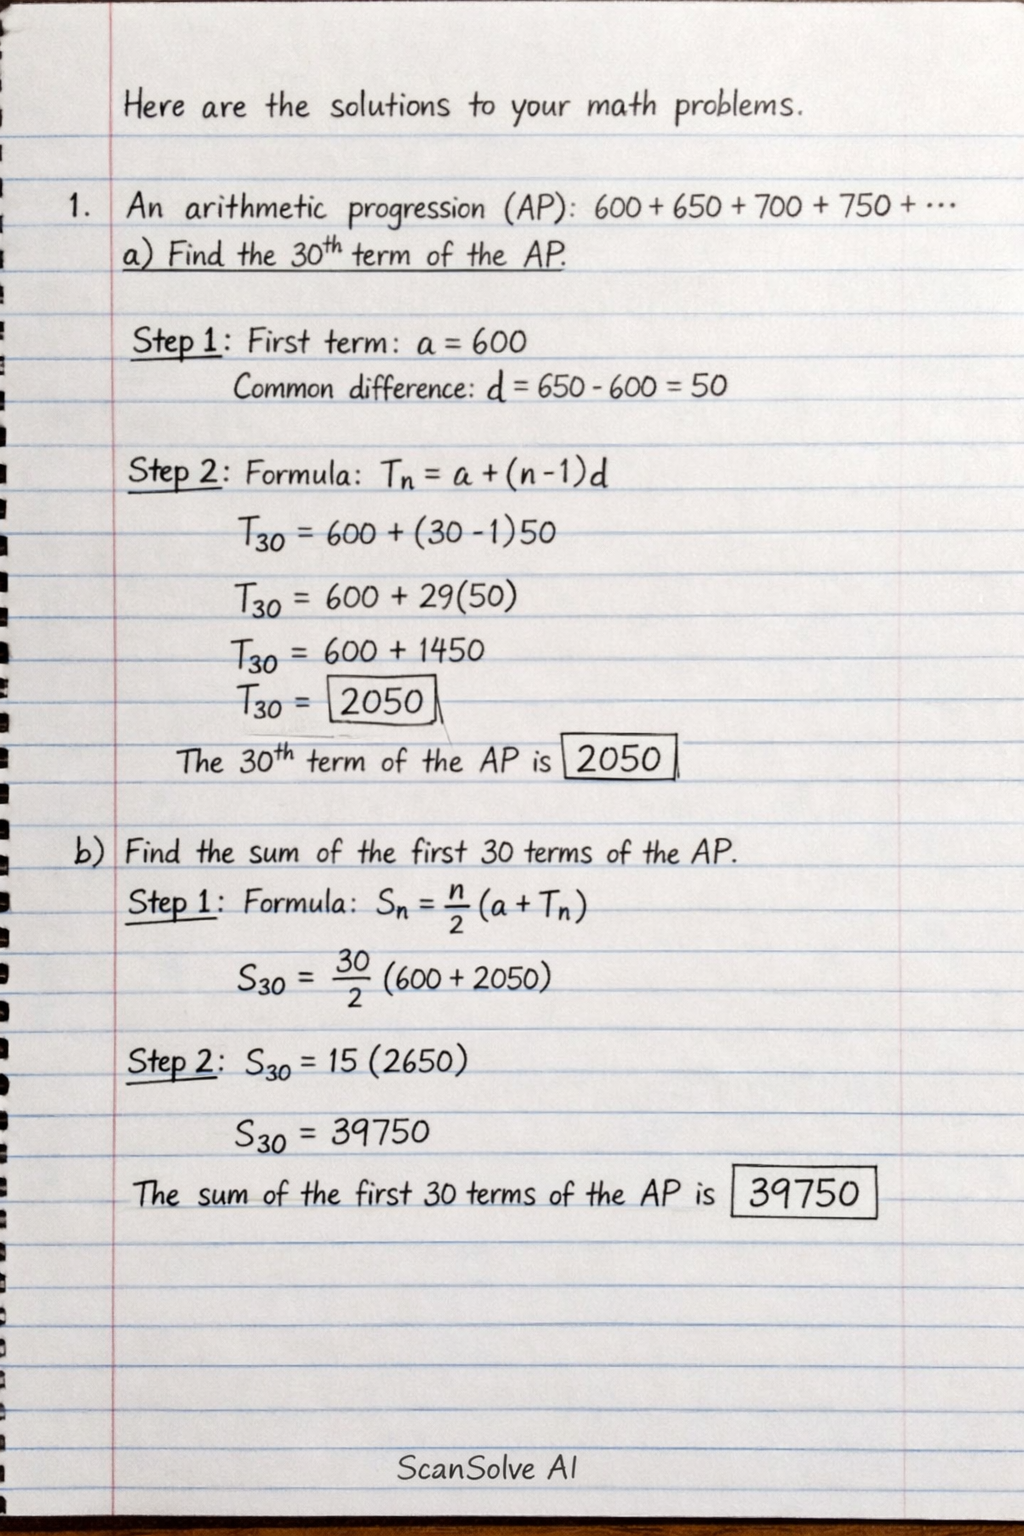 Here are the solutions to your math problems.
1. An arithmetic progression (AP): 600 + 650 + 700 + 750 + ⋯
a) Find the 30th term of the AP.
Step 1: First term: a = 600
Common difference: d = 650 - 600 = 50
Step 2: Formula: Tn = a + (n-1)d
T30 = 600 + (30 -1)50
T30 = 600 + 29(50)
T30 = 600 + 1450
T30 = 2050
The 30th term of the AP is 2050
b) Find the sum of the first 30 terms of the AP.
Step 1: Formula: Sn = n/2 (a + Tn)
S30 = 30/2 (600 + 2050)
Step 2: S30 = 15 (2650)
S30 = 39750
The sum of the first 30 terms of the AP is 39750
ScanSolve AI